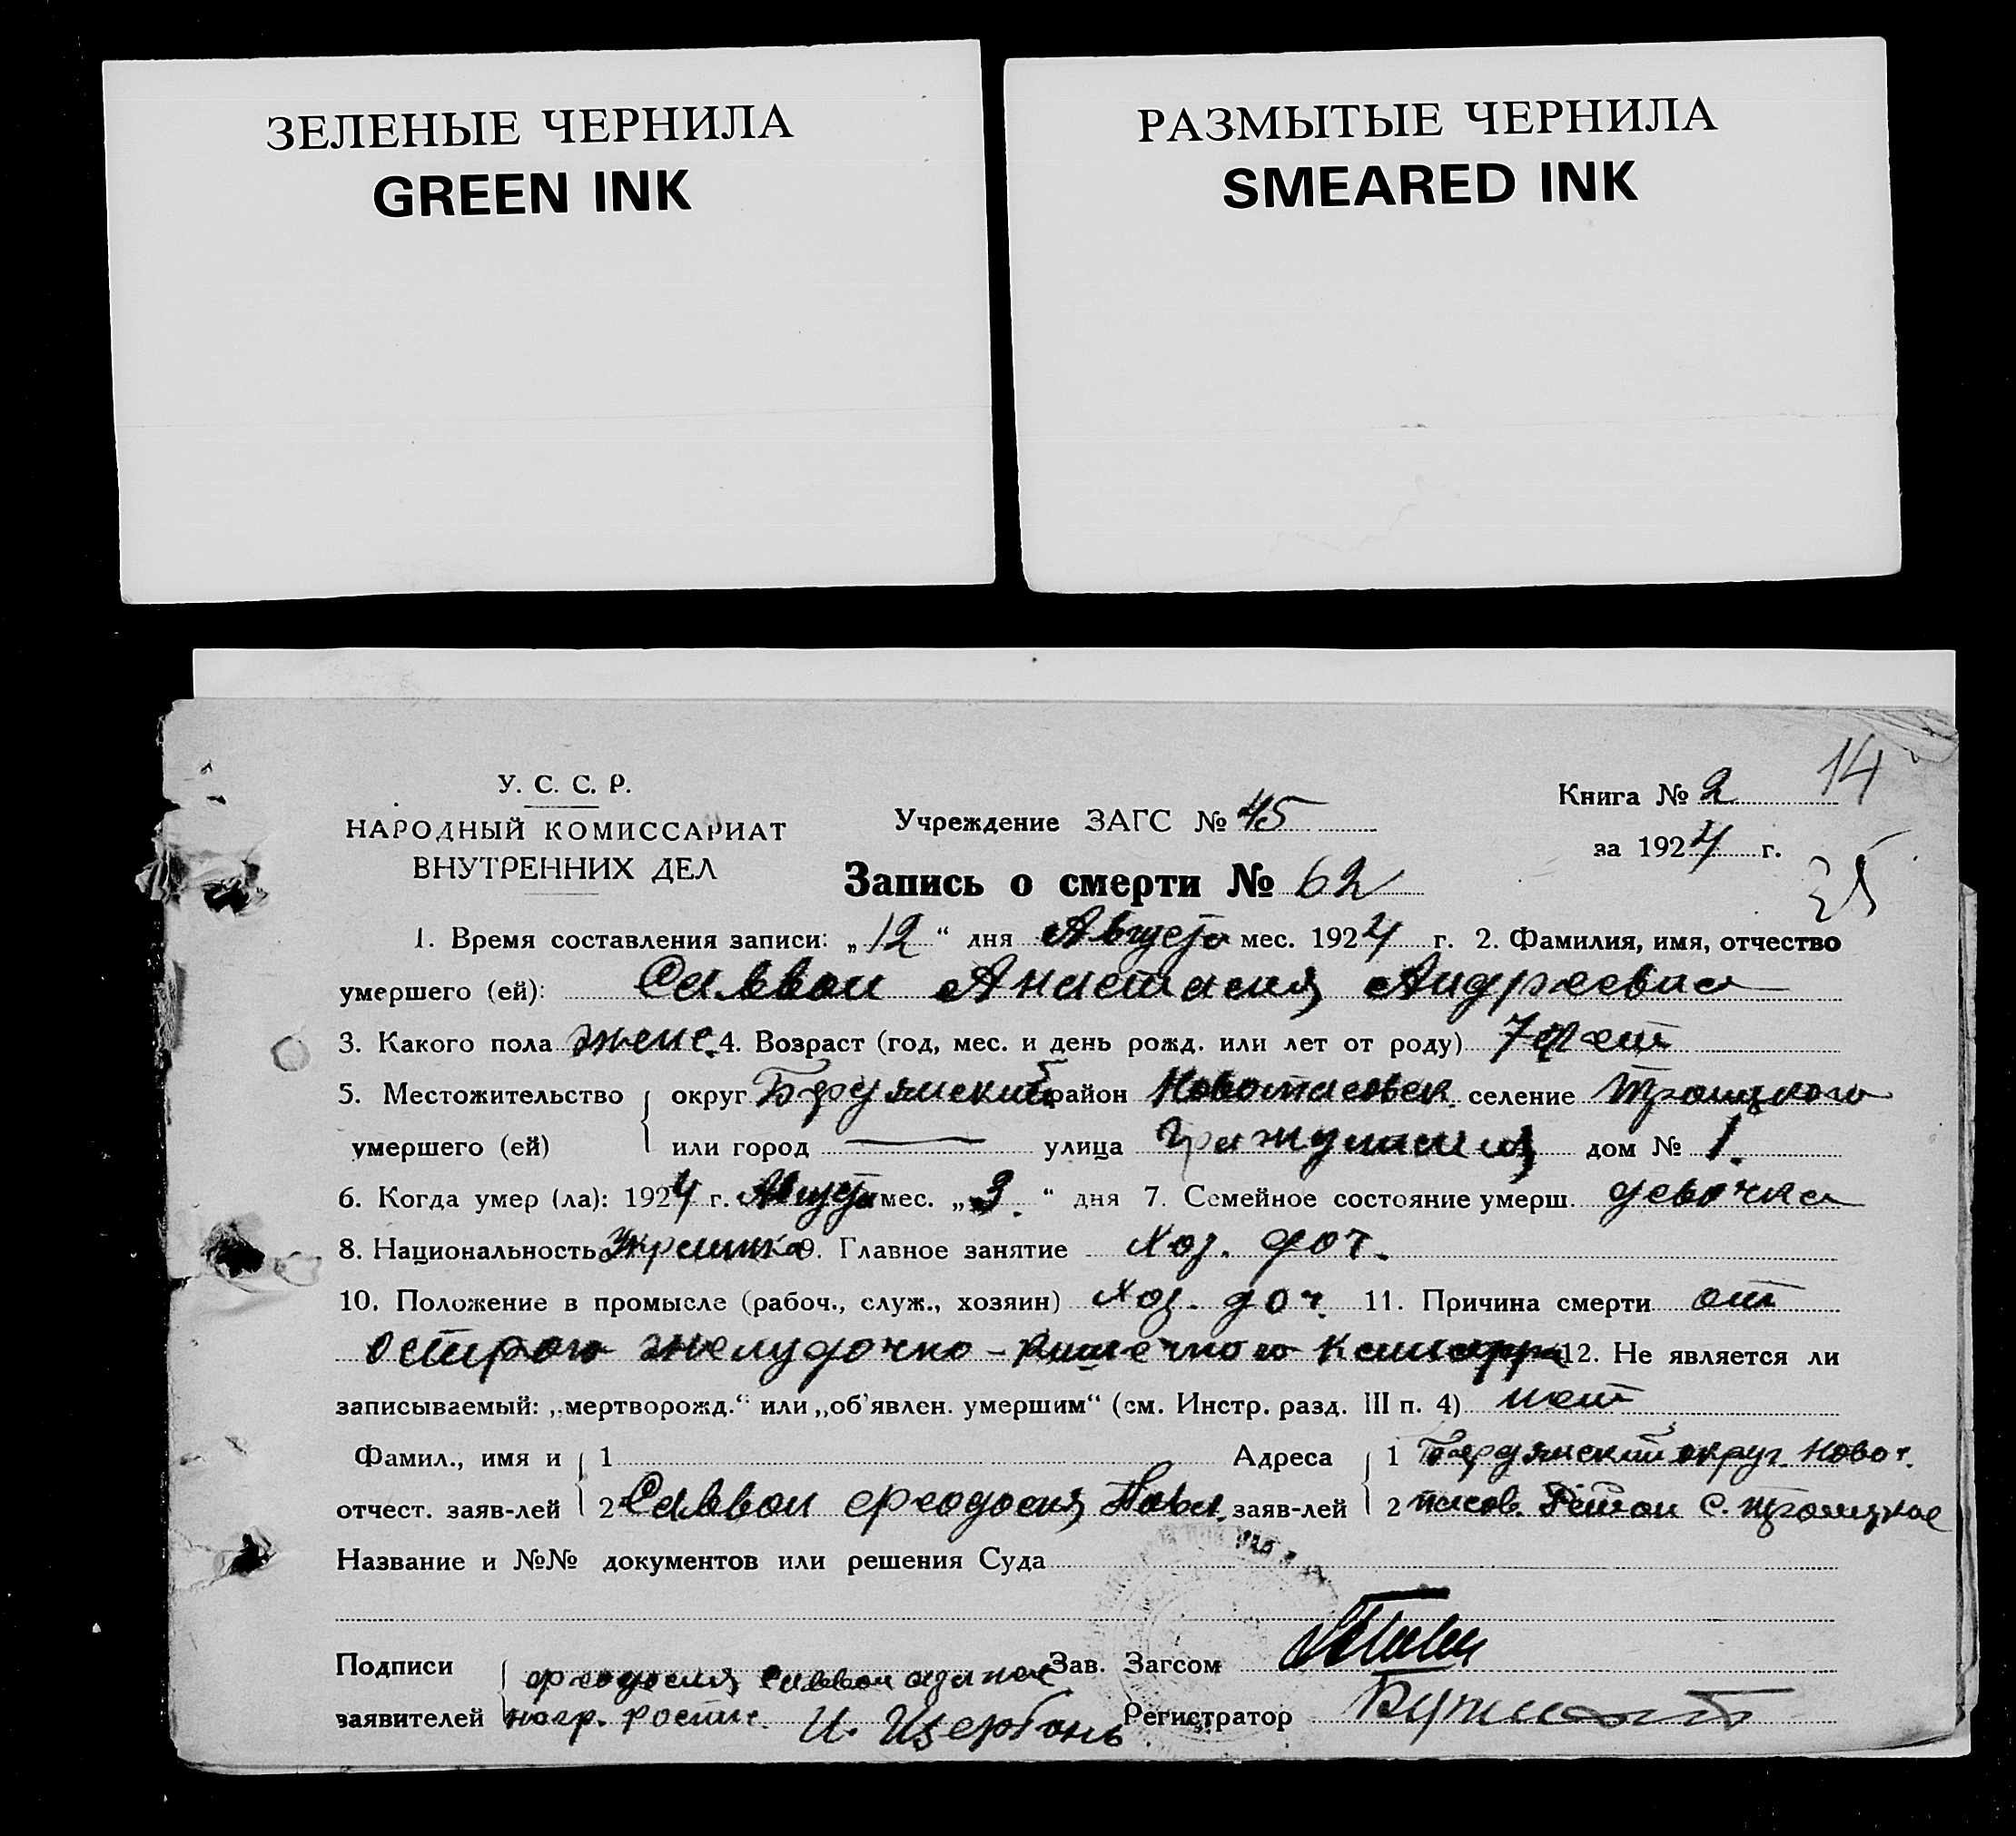 ЗЕЛЕНЫЕ ЧЕРНИЛА
GREEN INK
РАЗМЫТЫЕ ЧЕРНИЛА
SMEARED INK
14
У. С. С. Р.
НАРОДНЫЙ КОМИССАРИАТ
ВНУТРЕННИХ ДЕЛ
Учреждение ЗАГС № 45
Книга № 2
за 1924 г.
35
Запись о смерти № 62
1. Время составления записи: „12“ дня Августа мес. 1924 г. 2. Фамилия, имя, отчество
умершего (ей): Саввон Анастасия Андреевна
3. Какого пола женс. 4. Возраст (год, мес. и день рожд. или лет от роду) 7 лет
5. Местожительство округ Бердянский район Новоспасовск. селение Троицкого
умершего (ей) или город — улица дом № 1.
6. Когда умер (ла): 1924 г. Августа мес. „3.“ дня 7. Семейное состояние умерш. девочка
8. Национальность Украинка 9. Главное занятие Хоз. доч.
10. Положение в промысле (рабоч., служ., хозяин) Хоз. доч. 11. Причина смерти от
острого желудочно-кишечного катарра 12. Не является ли
записываемый: „мертворожд.“ или „об'явлен. умершим“ (см. Инстр. разд. III п. 4) нет
Фамил., имя и 1 Адреса 1 Бердянский округНово
отчест. заяв-лей 2 Саввон Феодосия заяв-лей 2 пасов. Район с. Троицкое
Название и №№ документов или решения Суда
Подписи Феодосия Саввон Зав. Загсом
заявителей негр. роспис. И. Щербань Регистратор